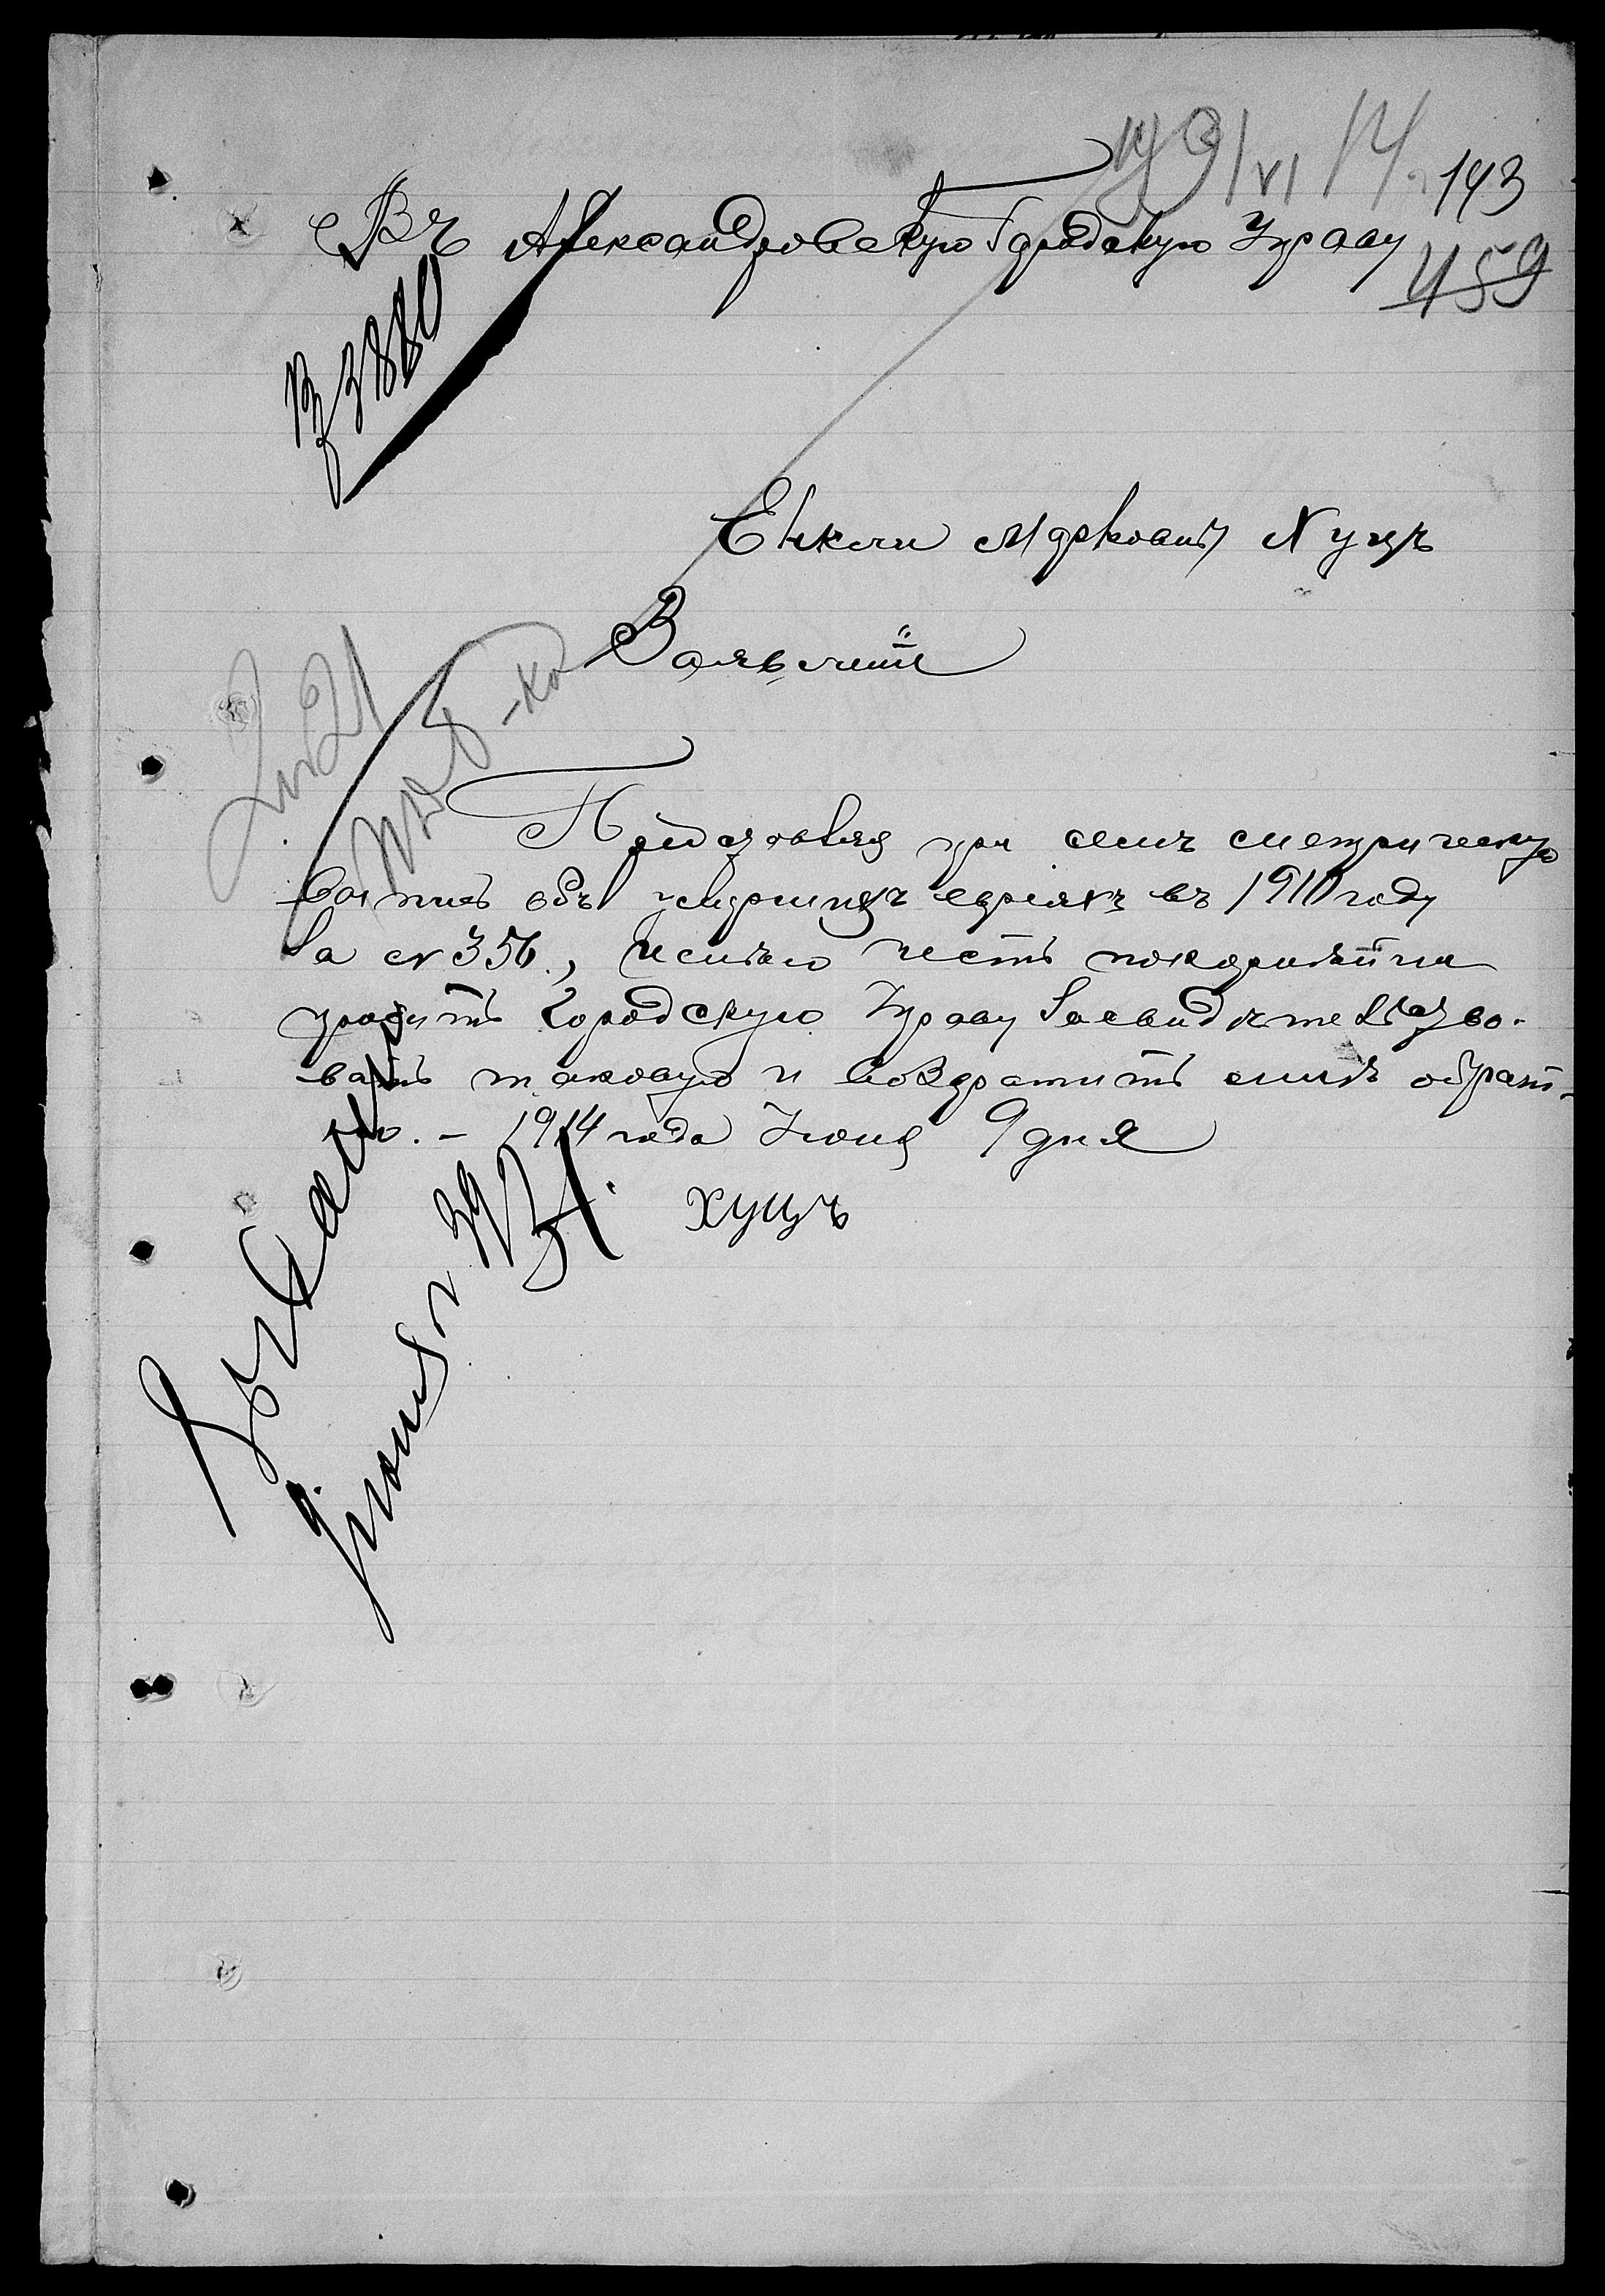 9/VI 14 143
Въ Александровскую Городскую Управу
459
3880
Марковичъ Хуцъ
Заявленіе
Представляя при семъ метрическую
выпись объ умершихъ евреяхъ въ 1910 году
за № 356, имѣю честь покорнѣйше
просить Городскую Управу засвидѣтельство-
вать таковую и возвратить мнѣ обрат-
но. - 1914 года Іюня 9 дня
Хуцъ
Іюня